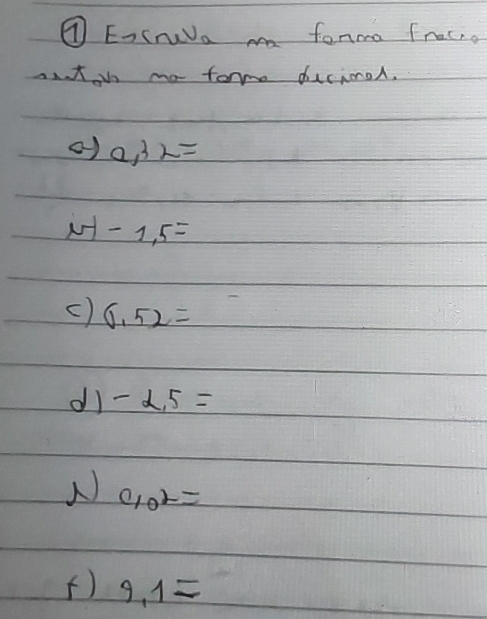 ① Escreva na forma fracio
na forma decimal.
a) 0,32=
b) -1,5=
c) 6,52=
d) -2,5=
e) 0,02=
f) 9,1=